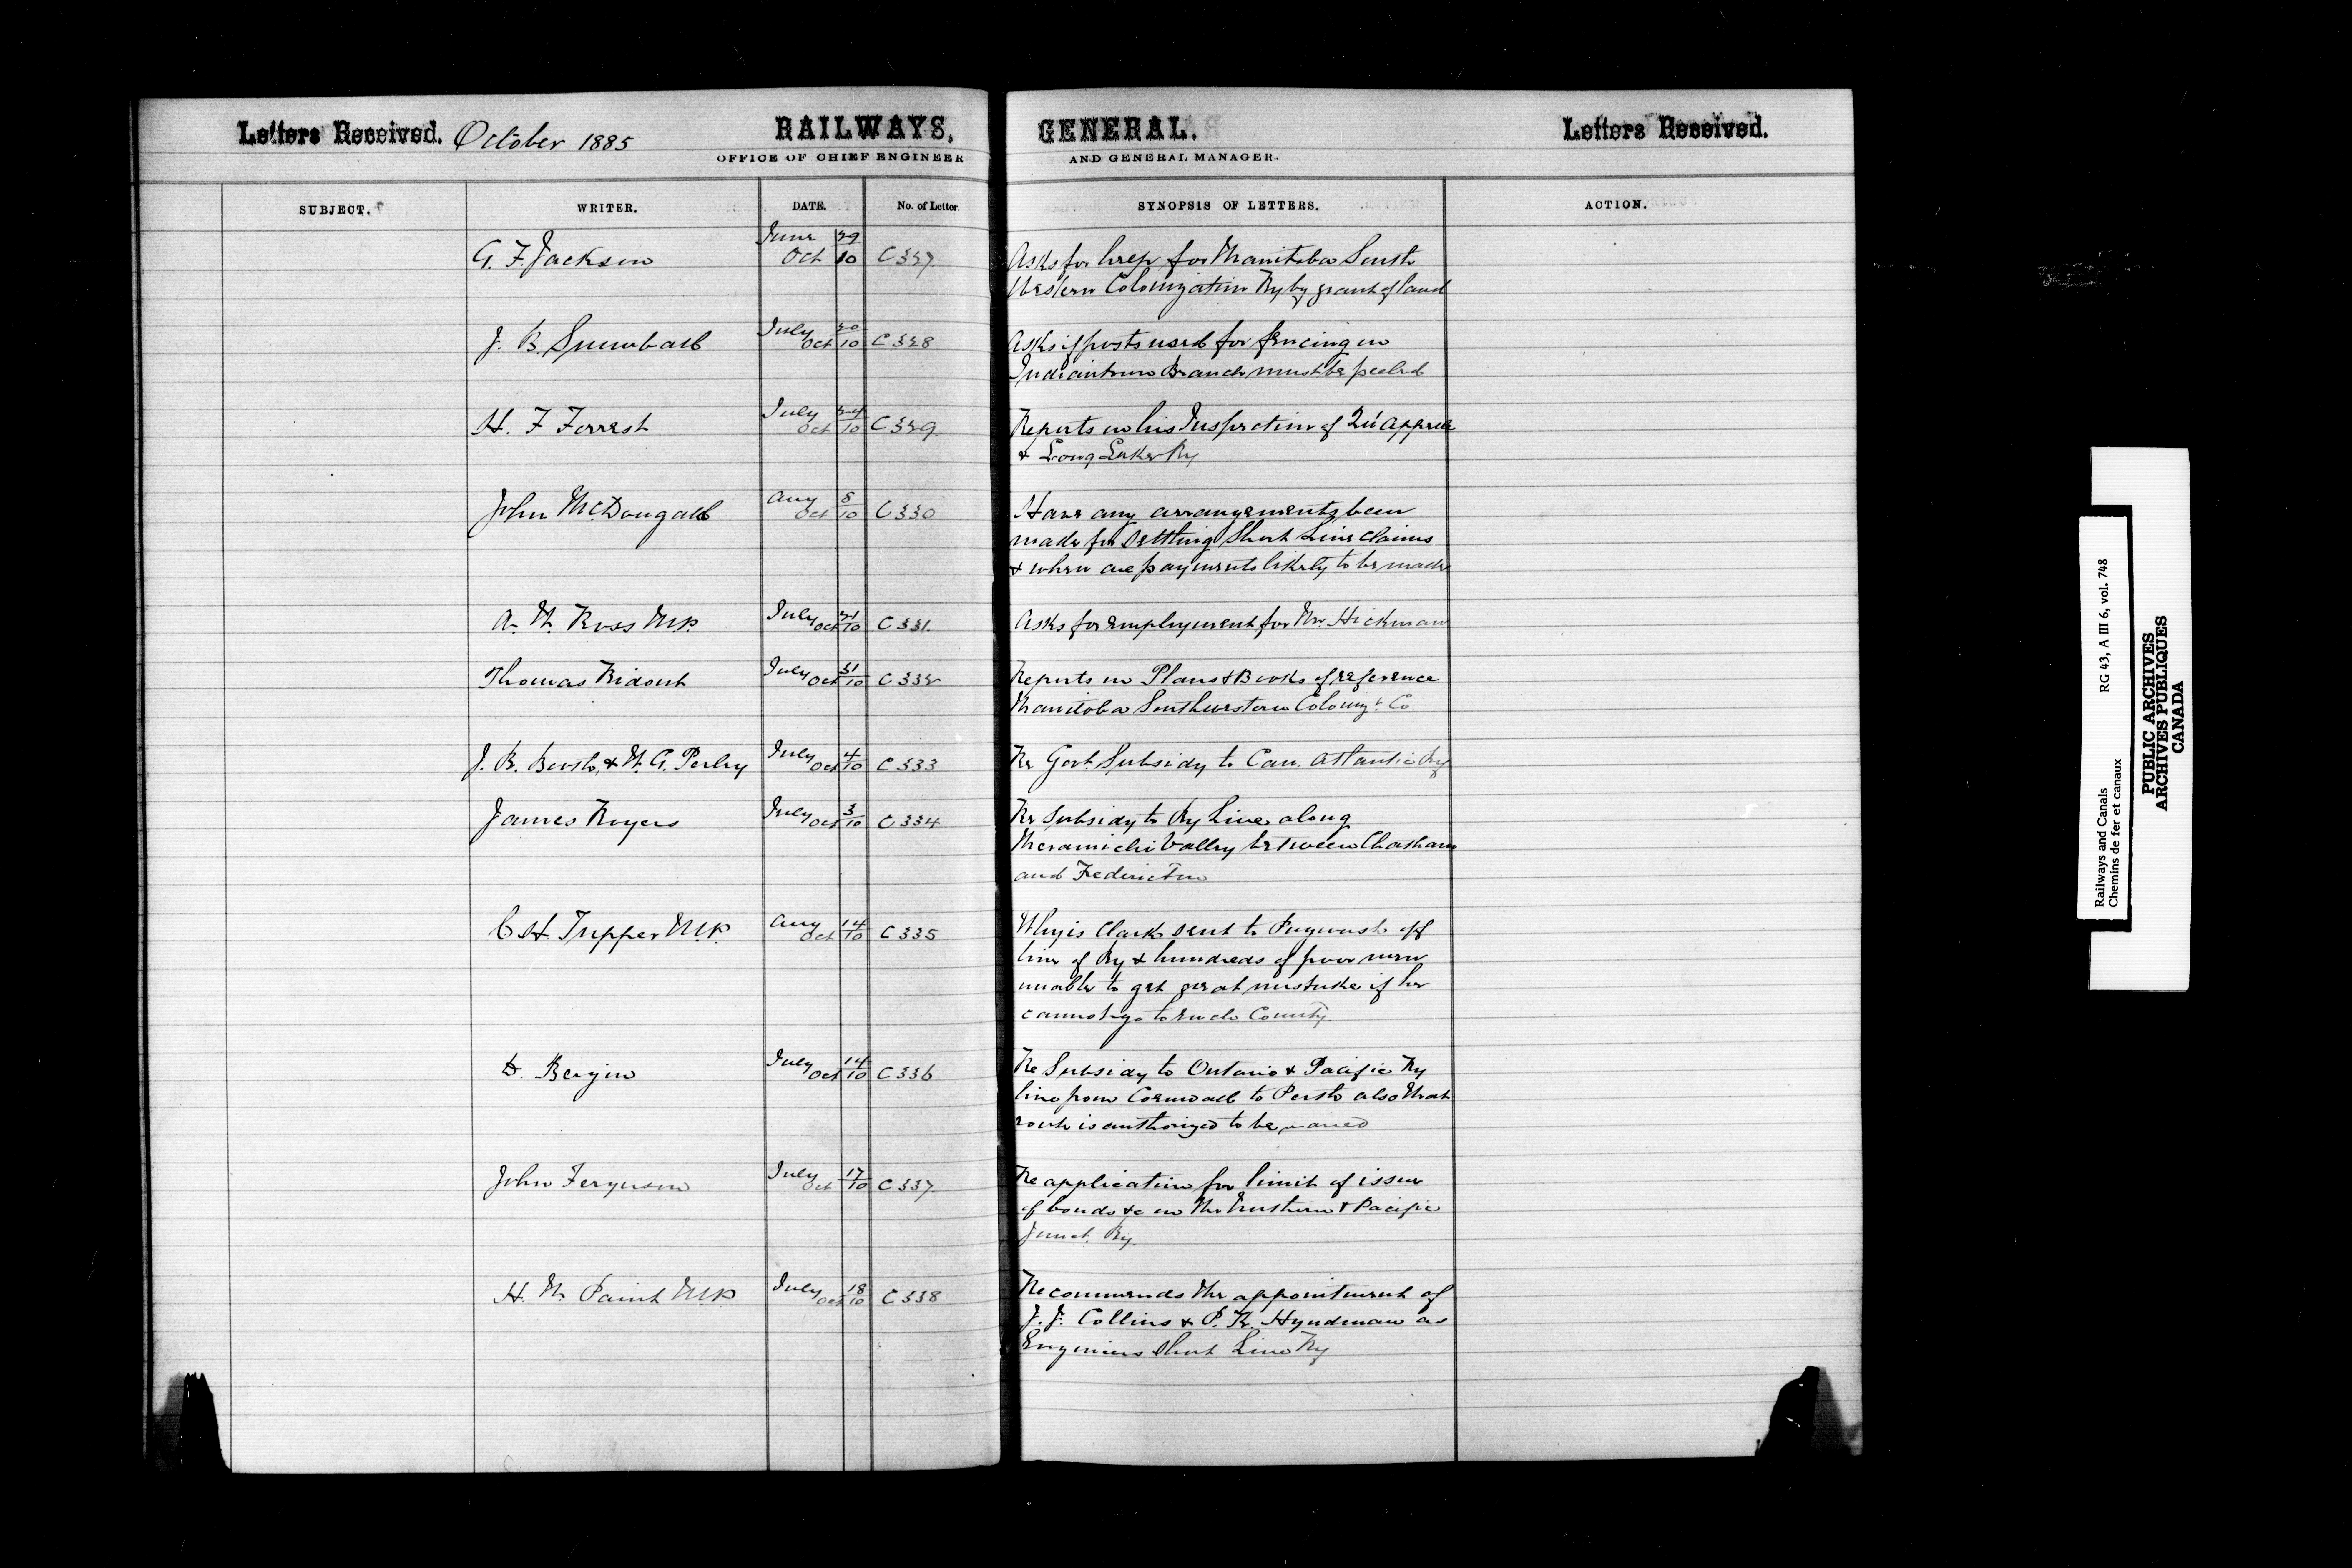 Letters Received. October 1885 RAILWAYS, GENERAL. Letters Received.
OFFICE OF CHIEF ENGINEER AND GENERAL MANAGER.
SUBJECT. WRITER. DATE. No. of Letter. SYNOPSIS OF LETTERS. ACTION.
June 29
G. F. Jackson Oct 10 C 327 Asks for help for Manitoba South
Western Colonization Ry by grant of land
J. B. Snowball July 20 Oct 10 C 328 Asks if posts used for fencing on
Indiantown Branch must be peeled
H. F Forrest July 24 Oct 10 C 329 Reports on his Inspection of Qu'Appelle
& Long Lake Ry
John McDougall Aug 8 Oct 10 C 330 Have any arrangements been
made for settling Short Line Claims
& when are payments likely to be made
A. W. Ross M.P. July 21 Oct 10 C 331. Asks for employment for Mr. Hickman
Thomas Ridout July 31 Oct 10 C 332 Reports on Plans & Books of reference
Manitoba Southwestern Coloniz't Co
J. R. Booth, & W. G. Perley July 4 Oct 10 C 333 Re Govt. Subsidy to Can. Atlantic Ry
James Rogers July 3 Oct 10 C 334 Re Subsidy to Ry Line along
Meramichi Valley between Chatham
and Fredericton
C H. Tupper M.P. Aug 14 Oct 10 C 335 Why is Clark sent to Pugwash off
line of Ry & hundreds of poor men
unable to get great mistake if he
cannot go to each County.
D. Bergin July 14 Oct 10 C 336 Re Subsidy to Ontario & Pacific Ry
line from Cornwall to Perth also that
route is authorized to be
John Ferguson July 17 Oct 10 C 337 Re application for limit of issue
of bonds &c on the Northern & Pacific
Junct. Ry.
H. N. Paint M.P July 18 Oct 10 C 338 Recommends the appointment of
J. J. Collins & P. K. Hyndman as
Engineers Short Line Ry
Railways and Canals RG 43, A III 6, vol. 748
Chemins de fer et canaux
PUBLIC ARCHIVES
ARCHIVES PUBLIQUES
CANADA